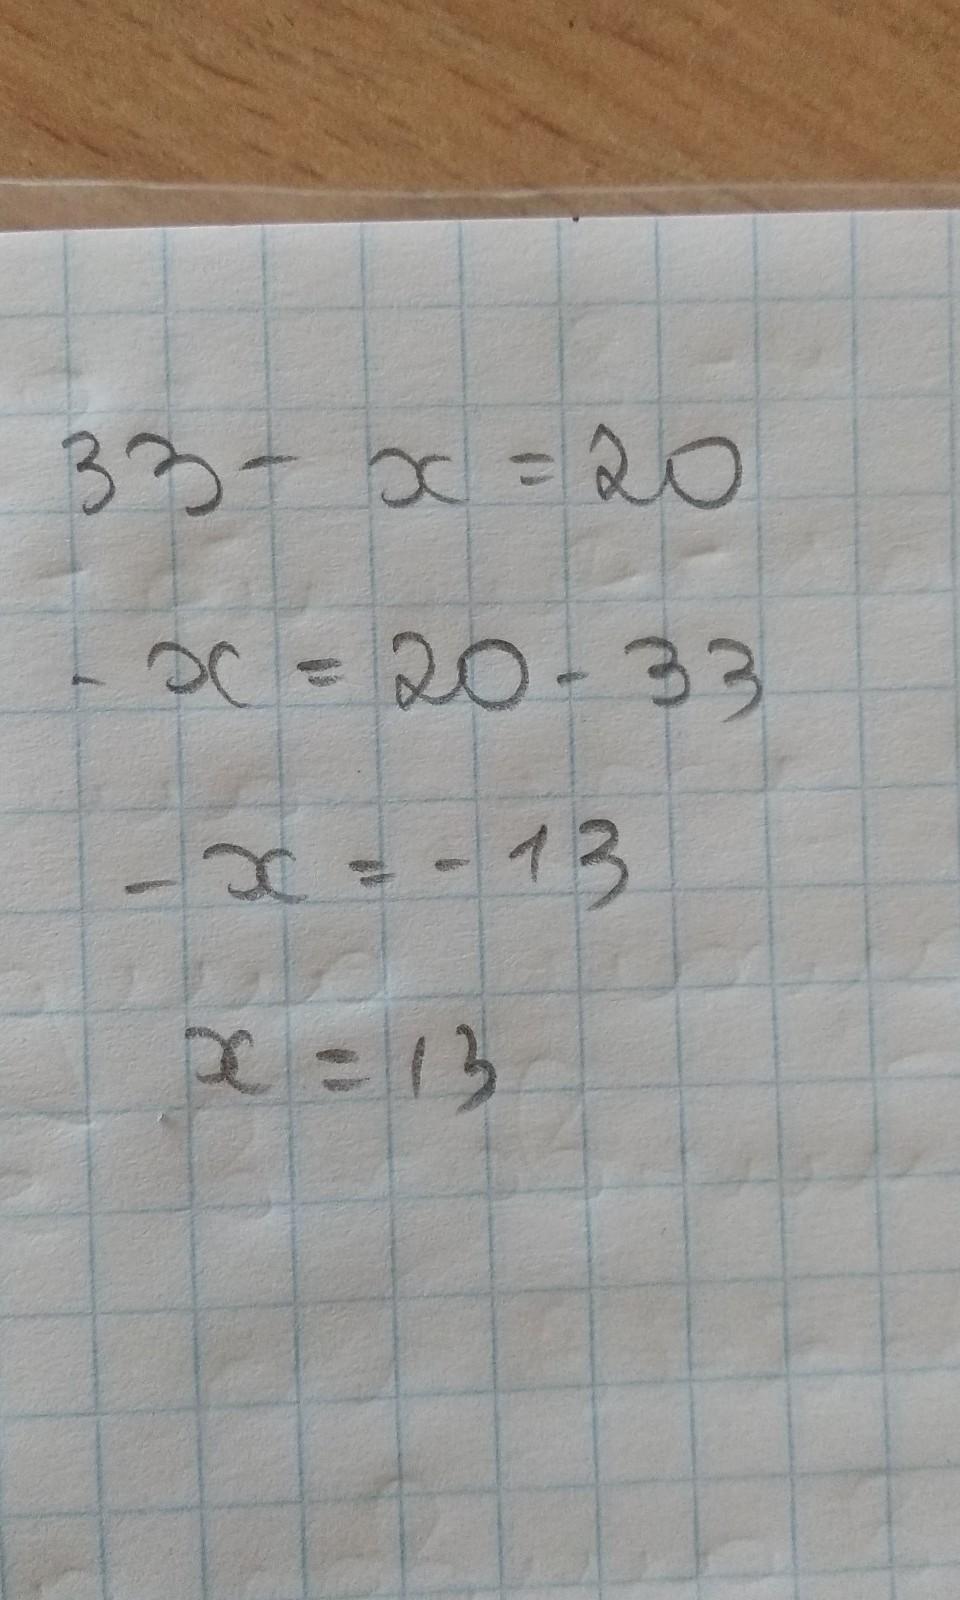 33 - x = 20
- x = 20 - 33
- x = - 13
x = 13